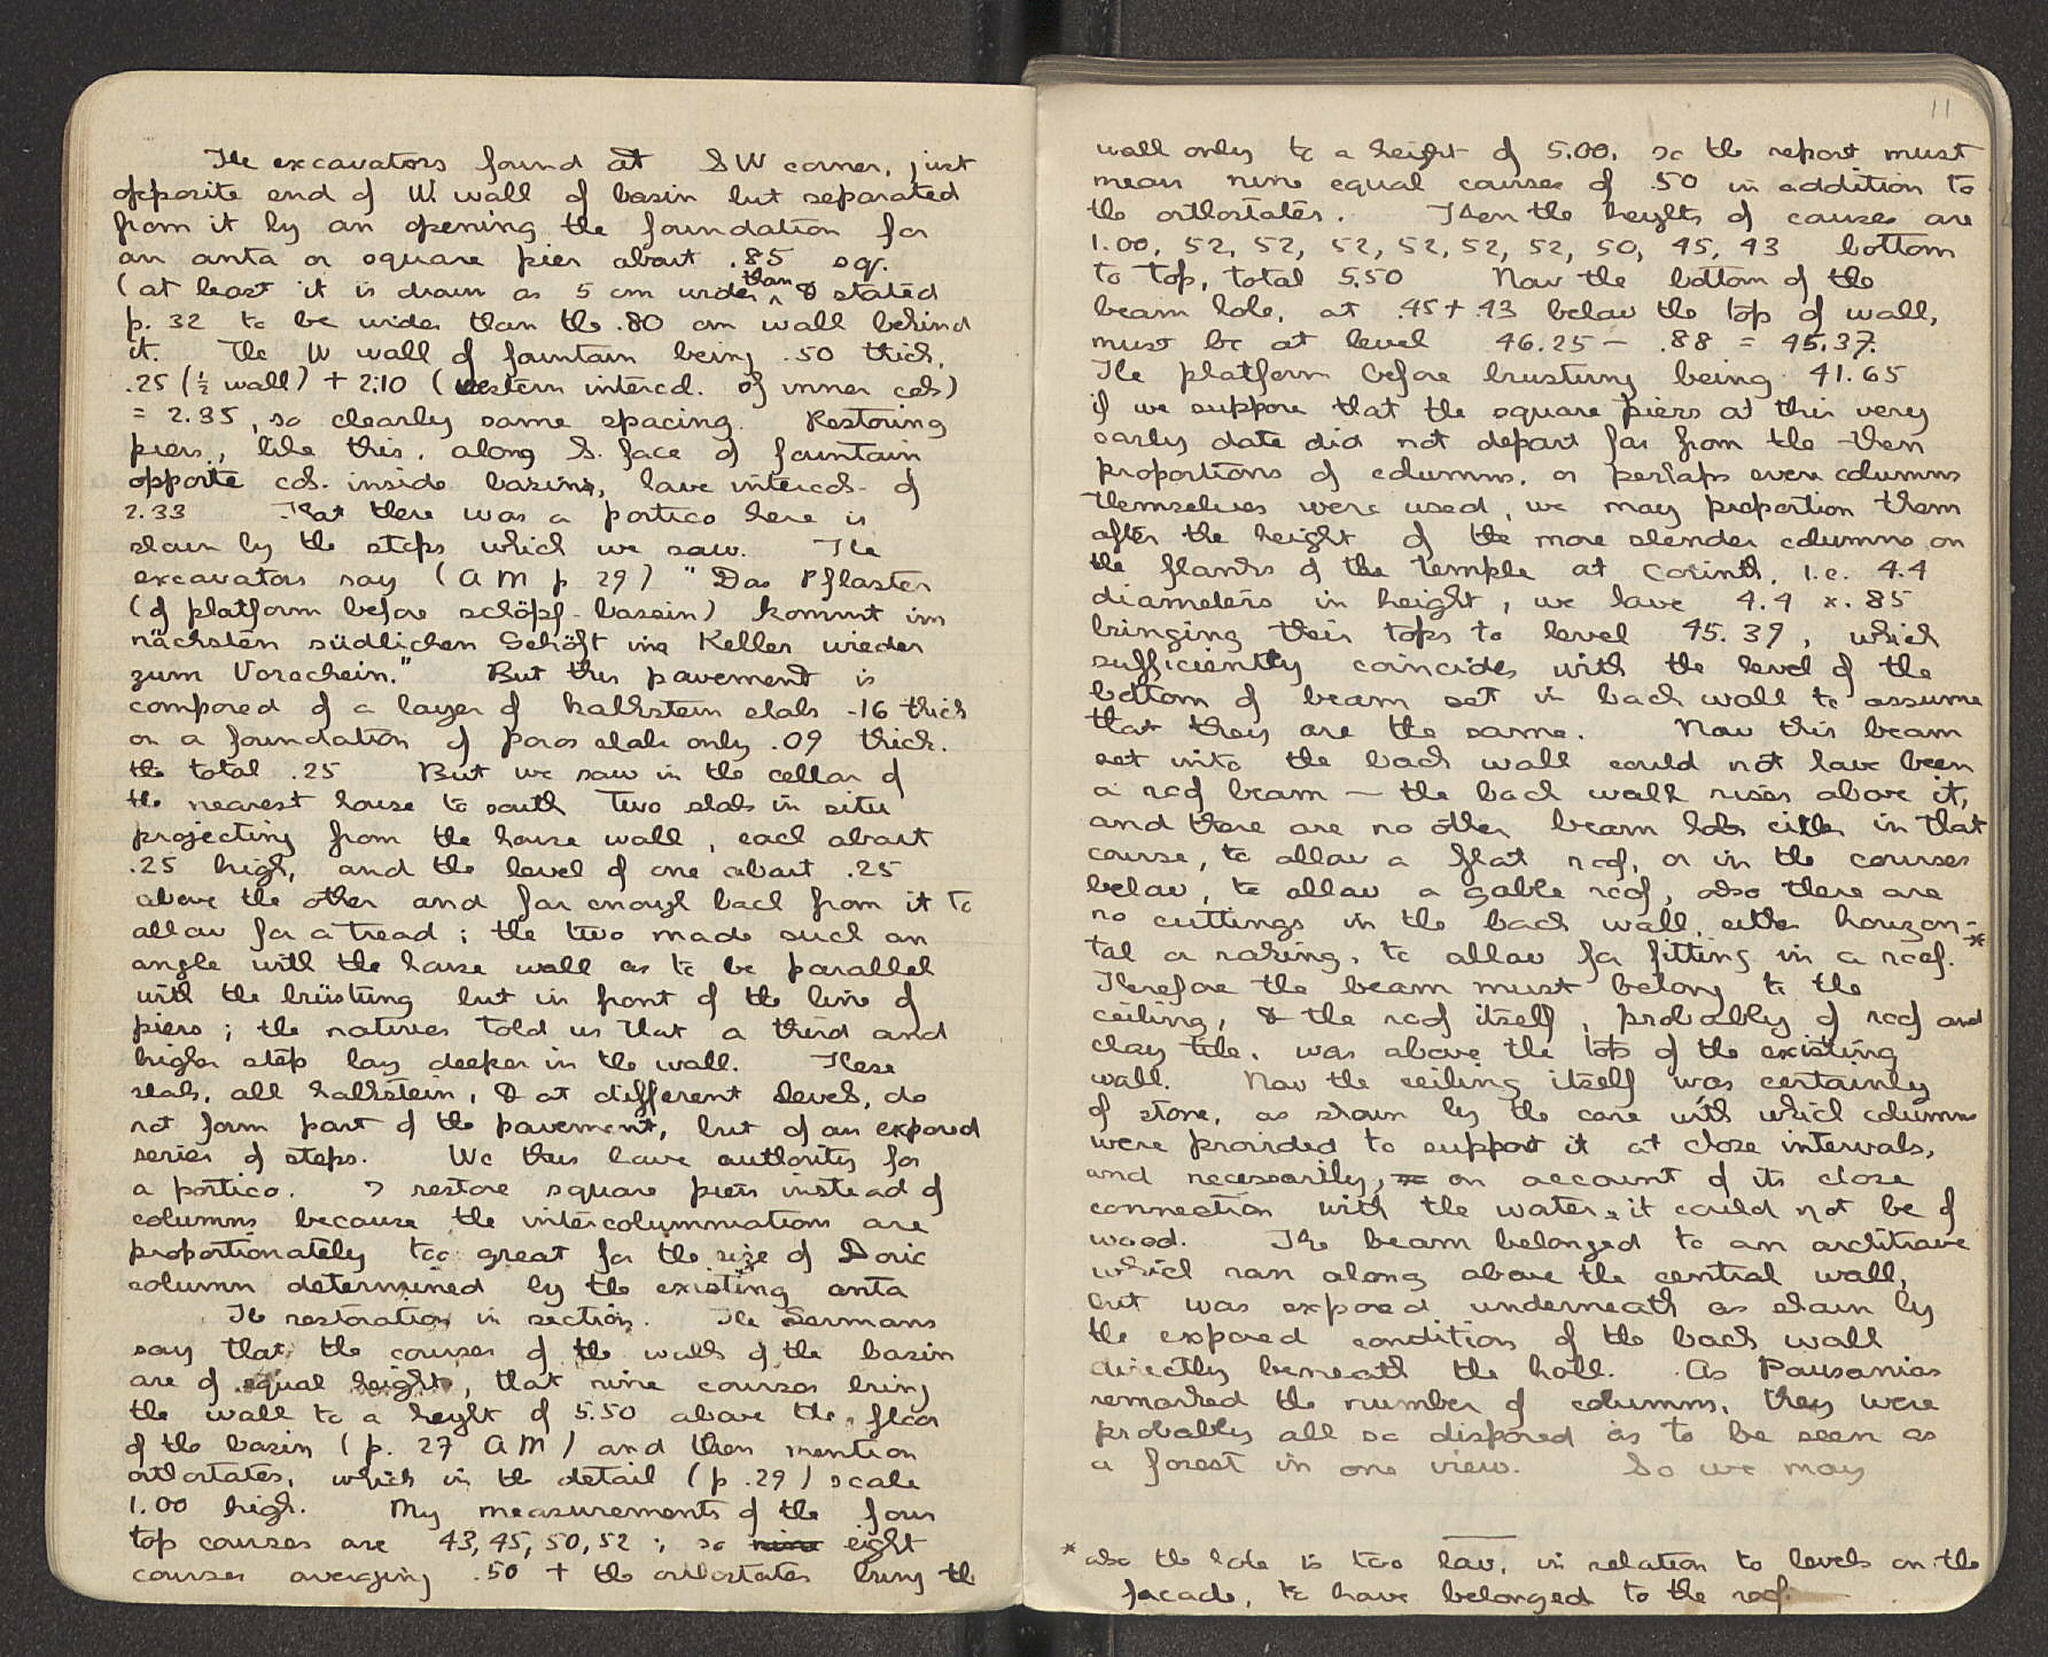 The excavators found at SW corner, just
opposite end of W. wall of basin but separated
from it by an opening the foundation for
an anta or square pier about .85 sq.
(at least it is drawn as 5 cm wider than & stated
p. 32 to be wider than the .80 cm wall behind
it. The W wall of fountain being .50 thick,
.25 (½ wall) + 2.10 (western intercol. of inner cols)
= 2.35, so clearly same spacing. Restoring
piers, like this, along S. face of fountain
opposite cols. inside basins, have intercols. of
2.33 That there was a portico here is
shown by the steps which we saw. The
excavators say (AM p 29) "Das Pflaster
(of platform before schöpf-bassin) kommt im
nächsten südlichen Gehöft im Keller wieder
zum Vorschein." But this pavement is
composed of a layer of kalkstein slabs .16 thick
on a foundation of poros slabs only .09 thick.
the total .25 But we saw in the cellar of
the nearest house to south two slabs in situ
projecting from the house wall, each about
.25 high, and the level of one about .25
above the other and far enough back from it to
allow for a tread; the two made such an
angle with the house wall as to be parallel
with the brüstung but in front of the line of
piers; the natives told us that a third and
higher step lay deeper in the wall. These
slabs, all kalkstein, & at different levels, do
not form part of the pavement, but of an exposed
series of steps. We thus have authority for
a portico. I restore square piers instead of
columns because the intercolumniations are
proportionately too great for the size of Doric
column determined by the existing anta
The restoration in section. The Germans
say that the courses of the walls of the basin
are of equal height, that nine courses bring
the wall to a height of 5.50 above the floor
of the basin (p. 27 AM) and then mention
orthostates, which in the detail (p. 29) scale
1.00 high. My measurements of the four
top courses are 43, 45, 50, 52; so nine eight
courses averaging .50 + the orthostates bring the
11
wall only to a height of 5.00, so the report must
mean nine equal courses of .50 in addition to
the orthostates. Then the heights of courses are
1.00, 52, 52, 52, 52, 52, 52, 50, 45, 43 bottom
to top, total 5.50 Now the bottom of the
beam hole, at .45 + .43 below the top of wall,
must be at level 46.25 - .88 = 45.37.
The platform before brustung being 41.65
if we suppose that the square piers at this very
early date did not depart far from the then
proportions of columns, or perhaps even columns
themselves were used, we may proportion them
after the height of the more slender columns on
the flanks of the temple at Corinth, i.e. 4.4
diameters in height, we have 4.4 x .85
bringing their tops to level 45.39, which
sufficiently coincides with the level of the
bottom of beam set in back wall to assume
that they are the same. Now this beam
set into the back wall could not have been
a roof beam - the back wall rises above it,
and there are no other beam holes either in that
course, to allow a flat roof, or in the courses
below, to allow a gable roof, also there are
no cuttings in the back wall, either horizon-
tal or raking, to allow for fitting in a roof.*
Therefore the beam must belong to the
ceiling, & the roof itself, probably of roof and
clay tile, was above the top of the existing
wall. Now the ceiling itself was certainly
of stone, as shown by the care with which columns
were provided to support it at close intervals,
and necessarily, on account of its close
connection with the water, it could not be of
wood. The beam belonged to an architrave
which ran along above the central wall,
but was exposed underneath as shown by
the exposed condition of the back wall
directly beneath the hole. As Pausanias
remarked the number of columns, they were
probably all so disposed as to be seen as
a forest in one view. So we may
* also the hole is too low, in relation to levels on the
facade, to have belonged to the roof.